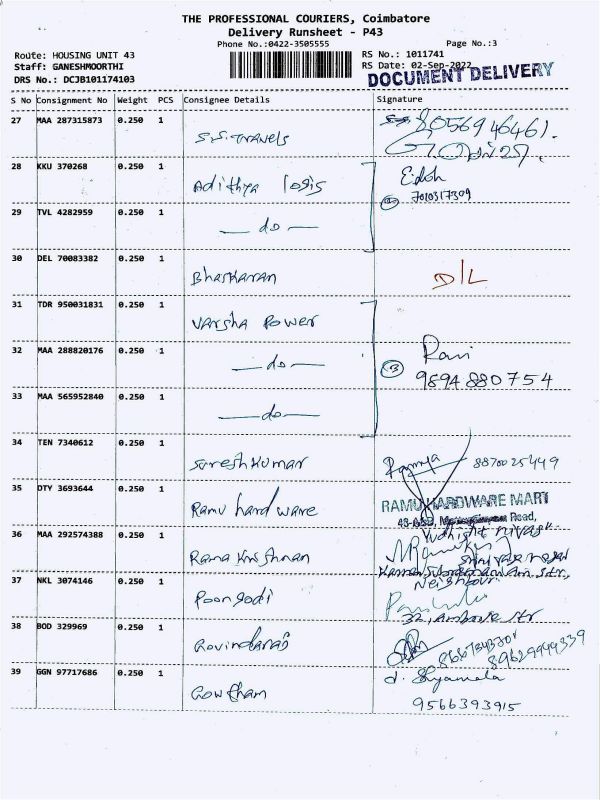 THE PROFESSIONAL COURIERS, Coimbatore
Delivery Runsheet - P43
Phone No.:0422-3505555
Page No.:3
Route: HOUSING UNIT 43
Staff: GANESHMOORTHI
DRS No.: DCJB101174103
RS No.: 1011741
RS Date: 02-Sep-2022
DOCUMENT DELIVERY
S No Consignment No Weight PCS Consignee Details Signature
27 MAA 287315873 0.250 1 S.S. Travels 8056946461.
28 KKU 370268 0.250 1 Adithya logis
7010317309
29 TVL 4282959 0.250 1 — do —
30 DEL 70083382 0.250 1 Bhaskaran D/L
31 TDR 950031831 0.250 1 Varsha Power
32 MAA 288820176 0.250 1 — do — 3 Ravi
9894880754
33 MAA 565952840 0.250 1 — do —
34 TEN 7340612 0.250 1 Sureshkumar Ramya 8870025449
35 DTY 3693644 0.250 1 Ramu hardware RAMU HARDWARE MART
Road,
36 MAA 292574388 0.250 1 Rama Krishnan
Neighbour.
37 NKL 3074146 0.250 1 Poongodi
38 BOD 329969 0.250 1 Govindaraj
8962994339
39 GGN 97717686 0.250 1 Gowtham d. Shyamala
9566393915